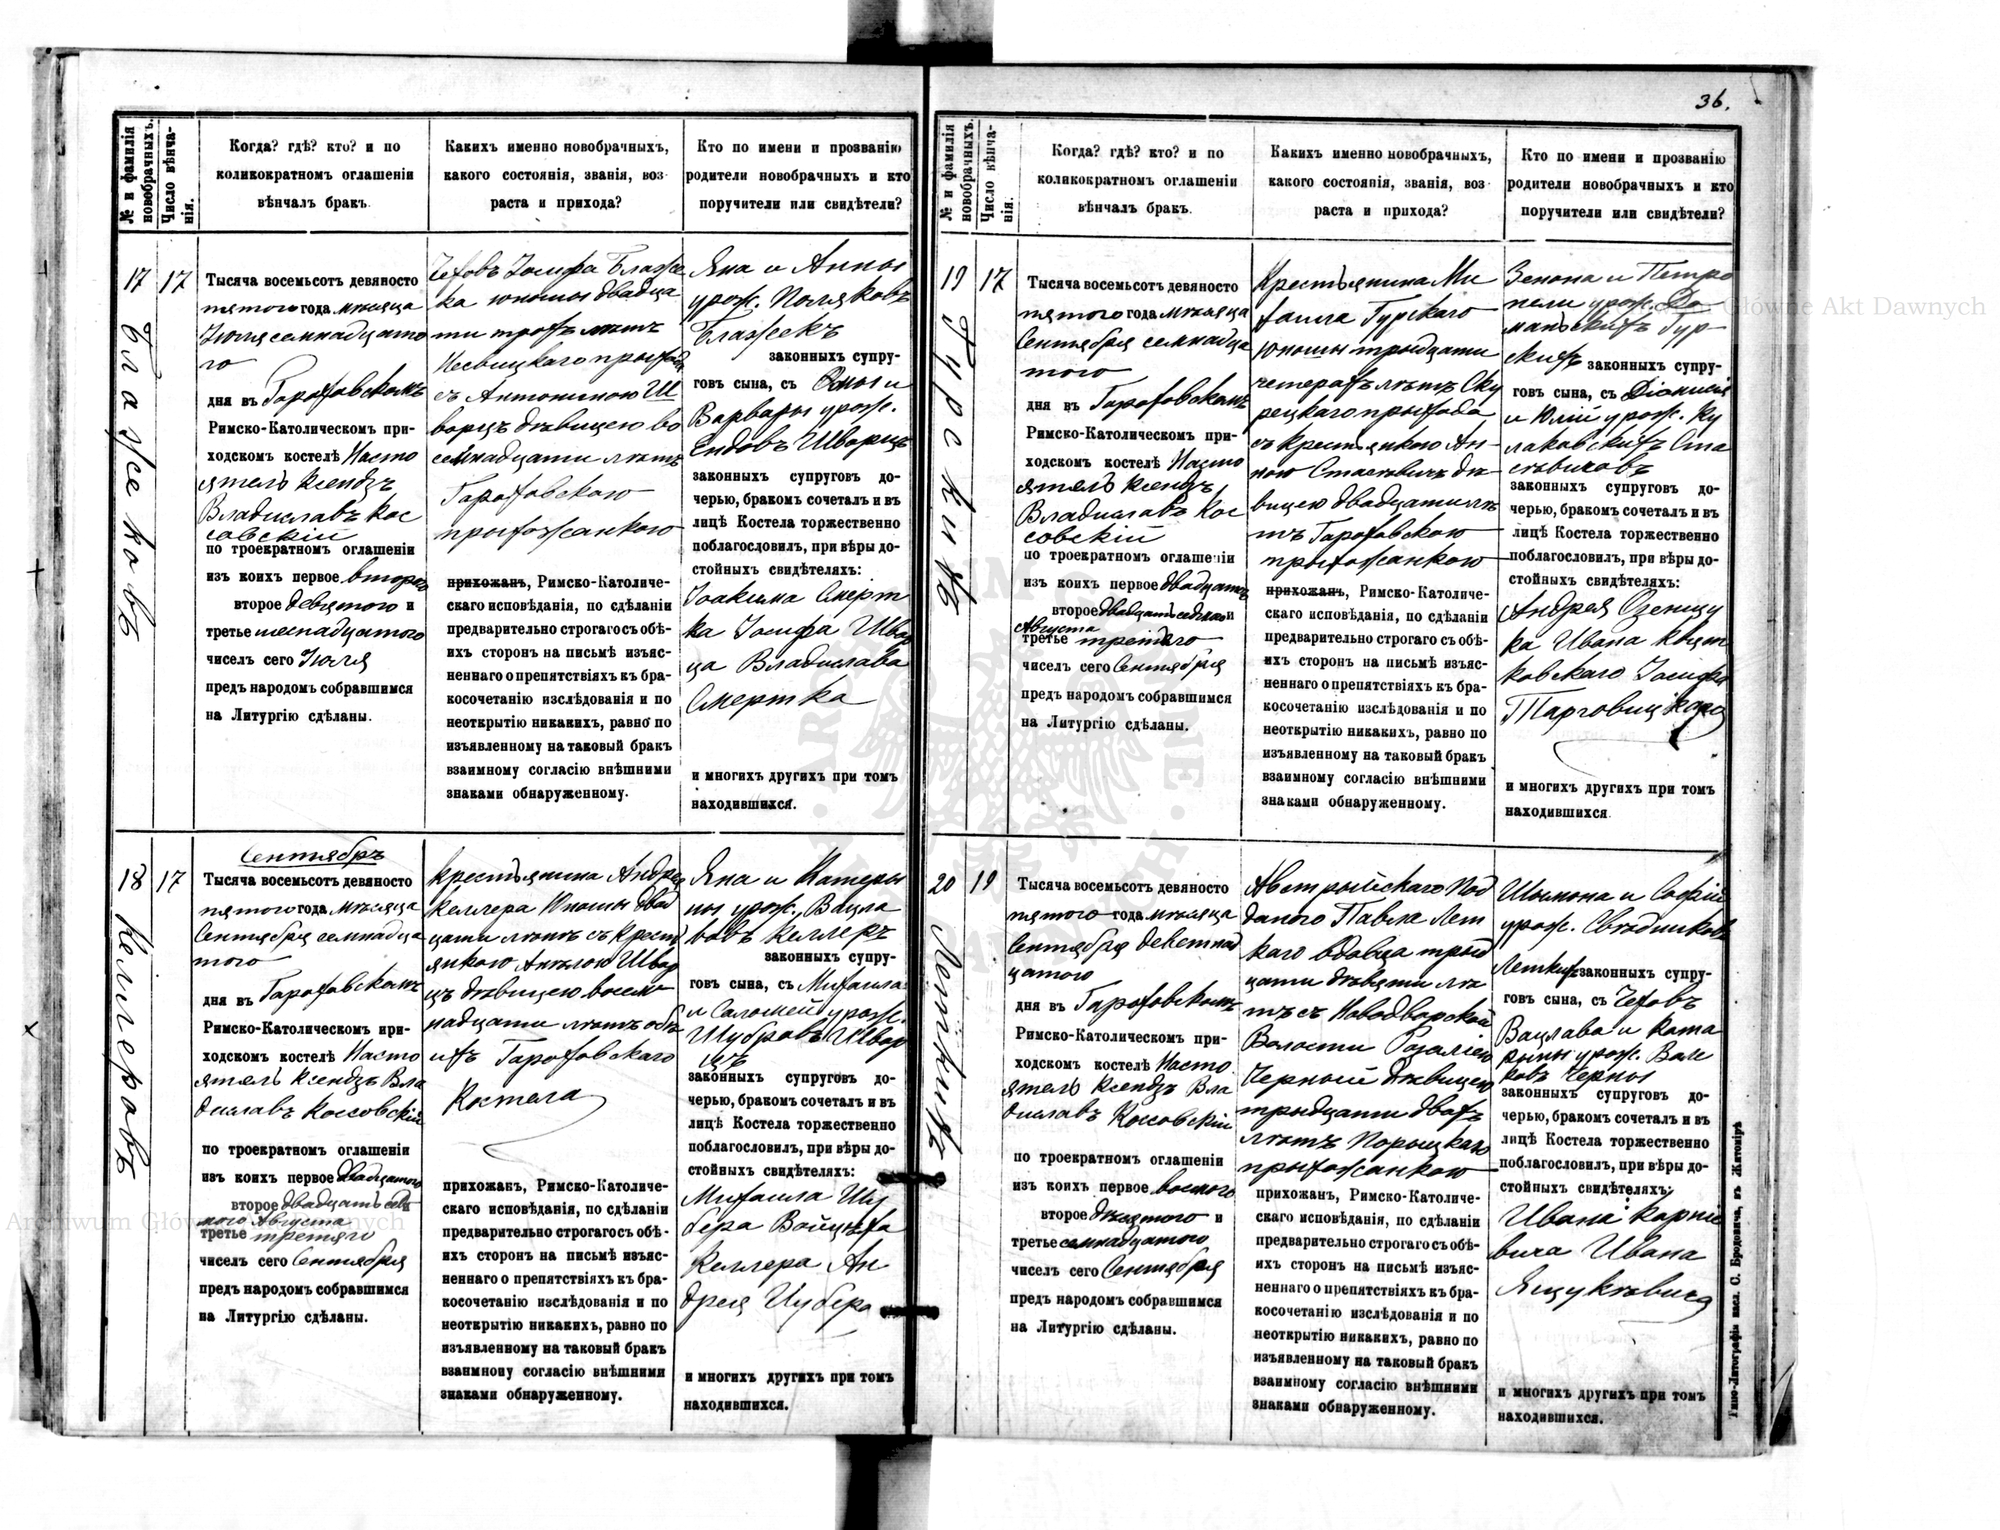 36.
№ и фамилія новобрачныхъ.
Число вѣнча-
нія.
Когда? гдѣ? кто? и по
коликократномъ оглашеніи
вѣнчалъ бракъ.
Какихъ именно новобрачныхъ,
какого состоянія, званія, воз-
раста и прихода?
Кто по имени и прозванію
родители новобрачныхъ и кто
поручители или свидѣтели?
17
Блажековъ
17
Тысяча восемьсотъ девяносто
пятого года мѣсяца
Іюля семнадцато
го
дня въ Гороховскомъ
Римско-Католическомъ при-
ходскомъ костелѣ Насто
ятель Ксендзъ
Владиславъ Кос
совскій
по троекратномъ оглашеніи
изъ коихъ первое второго
второе девятого и
третье шеснадцатого
чиселъ сего Іюля
предъ народомъ собравшимся
на Литургію сдѣланы.
Чеховъ Іосифа Блаже
ка юношы двадца
ти трохъ лѣтъ
Несвицкаго прыхода
съ Антониною Ш
ворцъ дѣвицею во
семнадцати лѣтъ
Гороховскою
прыхожанкою
прихожанъ, Римско-Католиче-
скаго исповѣданія, по сдѣланіи
предварительно строгаго съ обѣ-
ихъ сторонъ на письмѣ изъяс-
неннаго о препятствіяхъ къ бра-
косочетанію изслѣдованія и по
неоткрытію никакихъ, равно по
изъявленному на таковый бракъ
взаимному согласію внѣшними
знаками обнаруженному.
Яна и Анны
урож. Поляковъ
Блажекъ
законныхъ супру-
говъ сына, съ Фомы и
Варвары урож.
Ендовъ Шворцъ
законныхъ супруговъ до-
черью, бракомъ сочеталъ и въ
лицѣ Костела торжественно
поблагословилъ, при вѣры до-
стойныхъ свидѣтеляхъ:
Іоакима Смерт
ка Іосифа Швор
ца Владислава
Смертка
и многихъ другихъ при томъ
находившихся.
18
Келлеровъ
17
Сентябрь
Тысяча восемьсотъ девяносто
пятого года мѣсяца
Сентября семнадца
того
дня въ Гороховскомъ
Римско-Католическомъ при-
ходскомъ костелѣ Насто
ятель Ксендзъ Вла
диславъ Коссовскій
по троекратномъ оглашеніи
изъ коихъ первое двадцатого
второе двадцать седь
мого Августа
третье третяго
чиселъ сего Сентября
предъ народомъ собравшимся
на Литургію сдѣланы.
Крестьянина Андрея
Келлера Юношы двад
цати лѣтъ съ Крест
янкою Анелою Швор
цъ дѣвицею восем
надцати лѣтъ обо
ихъ Гороховскаго
Костела
прихожанъ, Римско-Католиче-
скаго исповѣданія, по сдѣланіи
предварительно строгаго съ обѣ-
ихъ сторонъ на письмѣ изъяс-
неннаго о препятствіяхъ къ бра-
косочетанію изслѣдованія и по
неоткрытію никакихъ, равно по
изъявленному на таковый бракъ
взаимному согласію внѣшними
знаками обнаруженному.
Яна и Катеры
ны урож. Вацла
вовъ Келлеръ
законныхъ супру-
говъ сына, съ Михаила
и Саломей урож.
Шубровъ Швор
цъ
законныхъ супруговъ до-
черью, бракомъ сочеталъ и въ
лицѣ Костела торжественно
поблагословилъ, при вѣры до-
стойныхъ свидѣтеляхъ:
Михаила Шу
бера Войцеха
Келлера Ан
дрея Шубера
и многихъ другихъ при томъ
находившихся.
№ и фамилія новобрачныхъ.
Число вѣнча-
нія.
Когда? гдѣ? кто? и по
коликократномъ оглашеніи
вѣнчалъ бракъ.
Какихъ именно новобрачныхъ,
какого состоянія, званія, воз-
раста и прихода?
Кто по имени и прозванію
родители новобрачныхъ и кто
поручители или свидѣтели?
19
Гурскихъ
17
Тысяча восемьсотъ девяносто
пятого года мѣсяца
Сентября семнадца
того
дня въ Гороховскомъ
Римско-Католическомъ при-
ходскомъ костелѣ Насто
ятель Ксендзъ
Владиславъ Кос
совскій
по троекратномъ оглашеніи
изъ коихъ первое двадцатого
второе двадцать седмого и
Августа
третье третяго
чиселъ сего Сентября
предъ народомъ собравшимся
на Литургію сдѣланы.
Крестьянина Ми
хаила Гурскаго
Юношы трыдцати
четерохъ лѣтъ Ску
рецкаго прыхода
съ Крестьянкою Ан-
ною Стасѣвичъ дѣ-
вицею двадцати лѣ
тъ Гороховскою
прыхожанкою
прихожанъ, Римско-Католиче-
скаго исповѣданія, по сдѣланіи
предварительно строгаго съ обѣ-
ихъ сторонъ на письмѣ изъяс-
неннаго о препятствіяхъ къ бра-
косочетанію изслѣдованія и по
неоткрытію никакихъ, равно по
изъявленному на таковый бракъ
взаимному согласію внѣшними
знаками обнаруженному.
Зенона и Петро
нели урож. До
манскихъ Гур-
скихъ законныхъ супру-
говъ сына, съ Діонисія
и Юлій урож. Ку
лаковскихъ Ста
сѣвичовъ
законныхъ супруговъ до-
черью, бракомъ сочеталъ и въ
лицѣ Костела торжественно
поблагословилъ, при вѣры до-
стойныхъ свидѣтеляхъ:
Андрея
ка Ивана
ковскаго Іосифа
Тарговицкаго
и многихъ другихъ при томъ
находившихся.
20
Леткихъ
19
Тысяча восемьсотъ девяносто
пятого года мѣсяца
Сентября деветнад
цатого
дня въ Гороховскомъ
Римско-Католическомъ при-
ходскомъ костелѣ Насто
ятель Ксендзъ Вла
диславъ Коссовскій
по троекратномъ оглашеніи
изъ коихъ первое восмого
второе девятого и
третье семнадцатого
чиселъ сего Сентября
предъ народомъ собравшимся
на Литургію сдѣланы.
Австрыйскаго Под
даного Павла Лет
каго вдовца трыд
цати девяти лѣ
тъ съ Новодворской
Волости Розаліею
Черный дѣвицею
трыдцати двохъ
лѣтъ Порыцкаго
прыхожанкою
прихожанъ, Римско-Католиче-
скаго исповѣданія, по сдѣланіи
предварительно строгаго съ обѣ-
ихъ сторонъ на письмѣ изъяс-
неннаго о препятствіяхъ къ бра-
косочетанію изслѣдованія и по
неоткрытію никакихъ, равно по
изъявленному на таковый бракъ
взаимному согласію внѣшними
знаками обнаруженному.
Шымона и Софій
урож.
Леткихъ законныхъ супру-
говъ сына, съ Чеховъ
Вацлава и Ката
рыны урож. Вол
ковъ Черны
законныхъ супруговъ до-
черью, бракомъ сочеталъ и въ
лицѣ Костела торжественно
поблагословилъ, при вѣры до-
стойныхъ свидѣтеляхъ:
Ивана Карпѣ
вича Ивана
Яцукѣвича
и многихъ другихъ при томъ
находившихся.
Типо-Литографія насл. С. Бродовича, въ Житомірѣ
Archiwum Główne Akt Dawnych
Archiwum Główne Akt Dawnych
ARCHIWUM GŁÓWNE AKT DAWNYCH